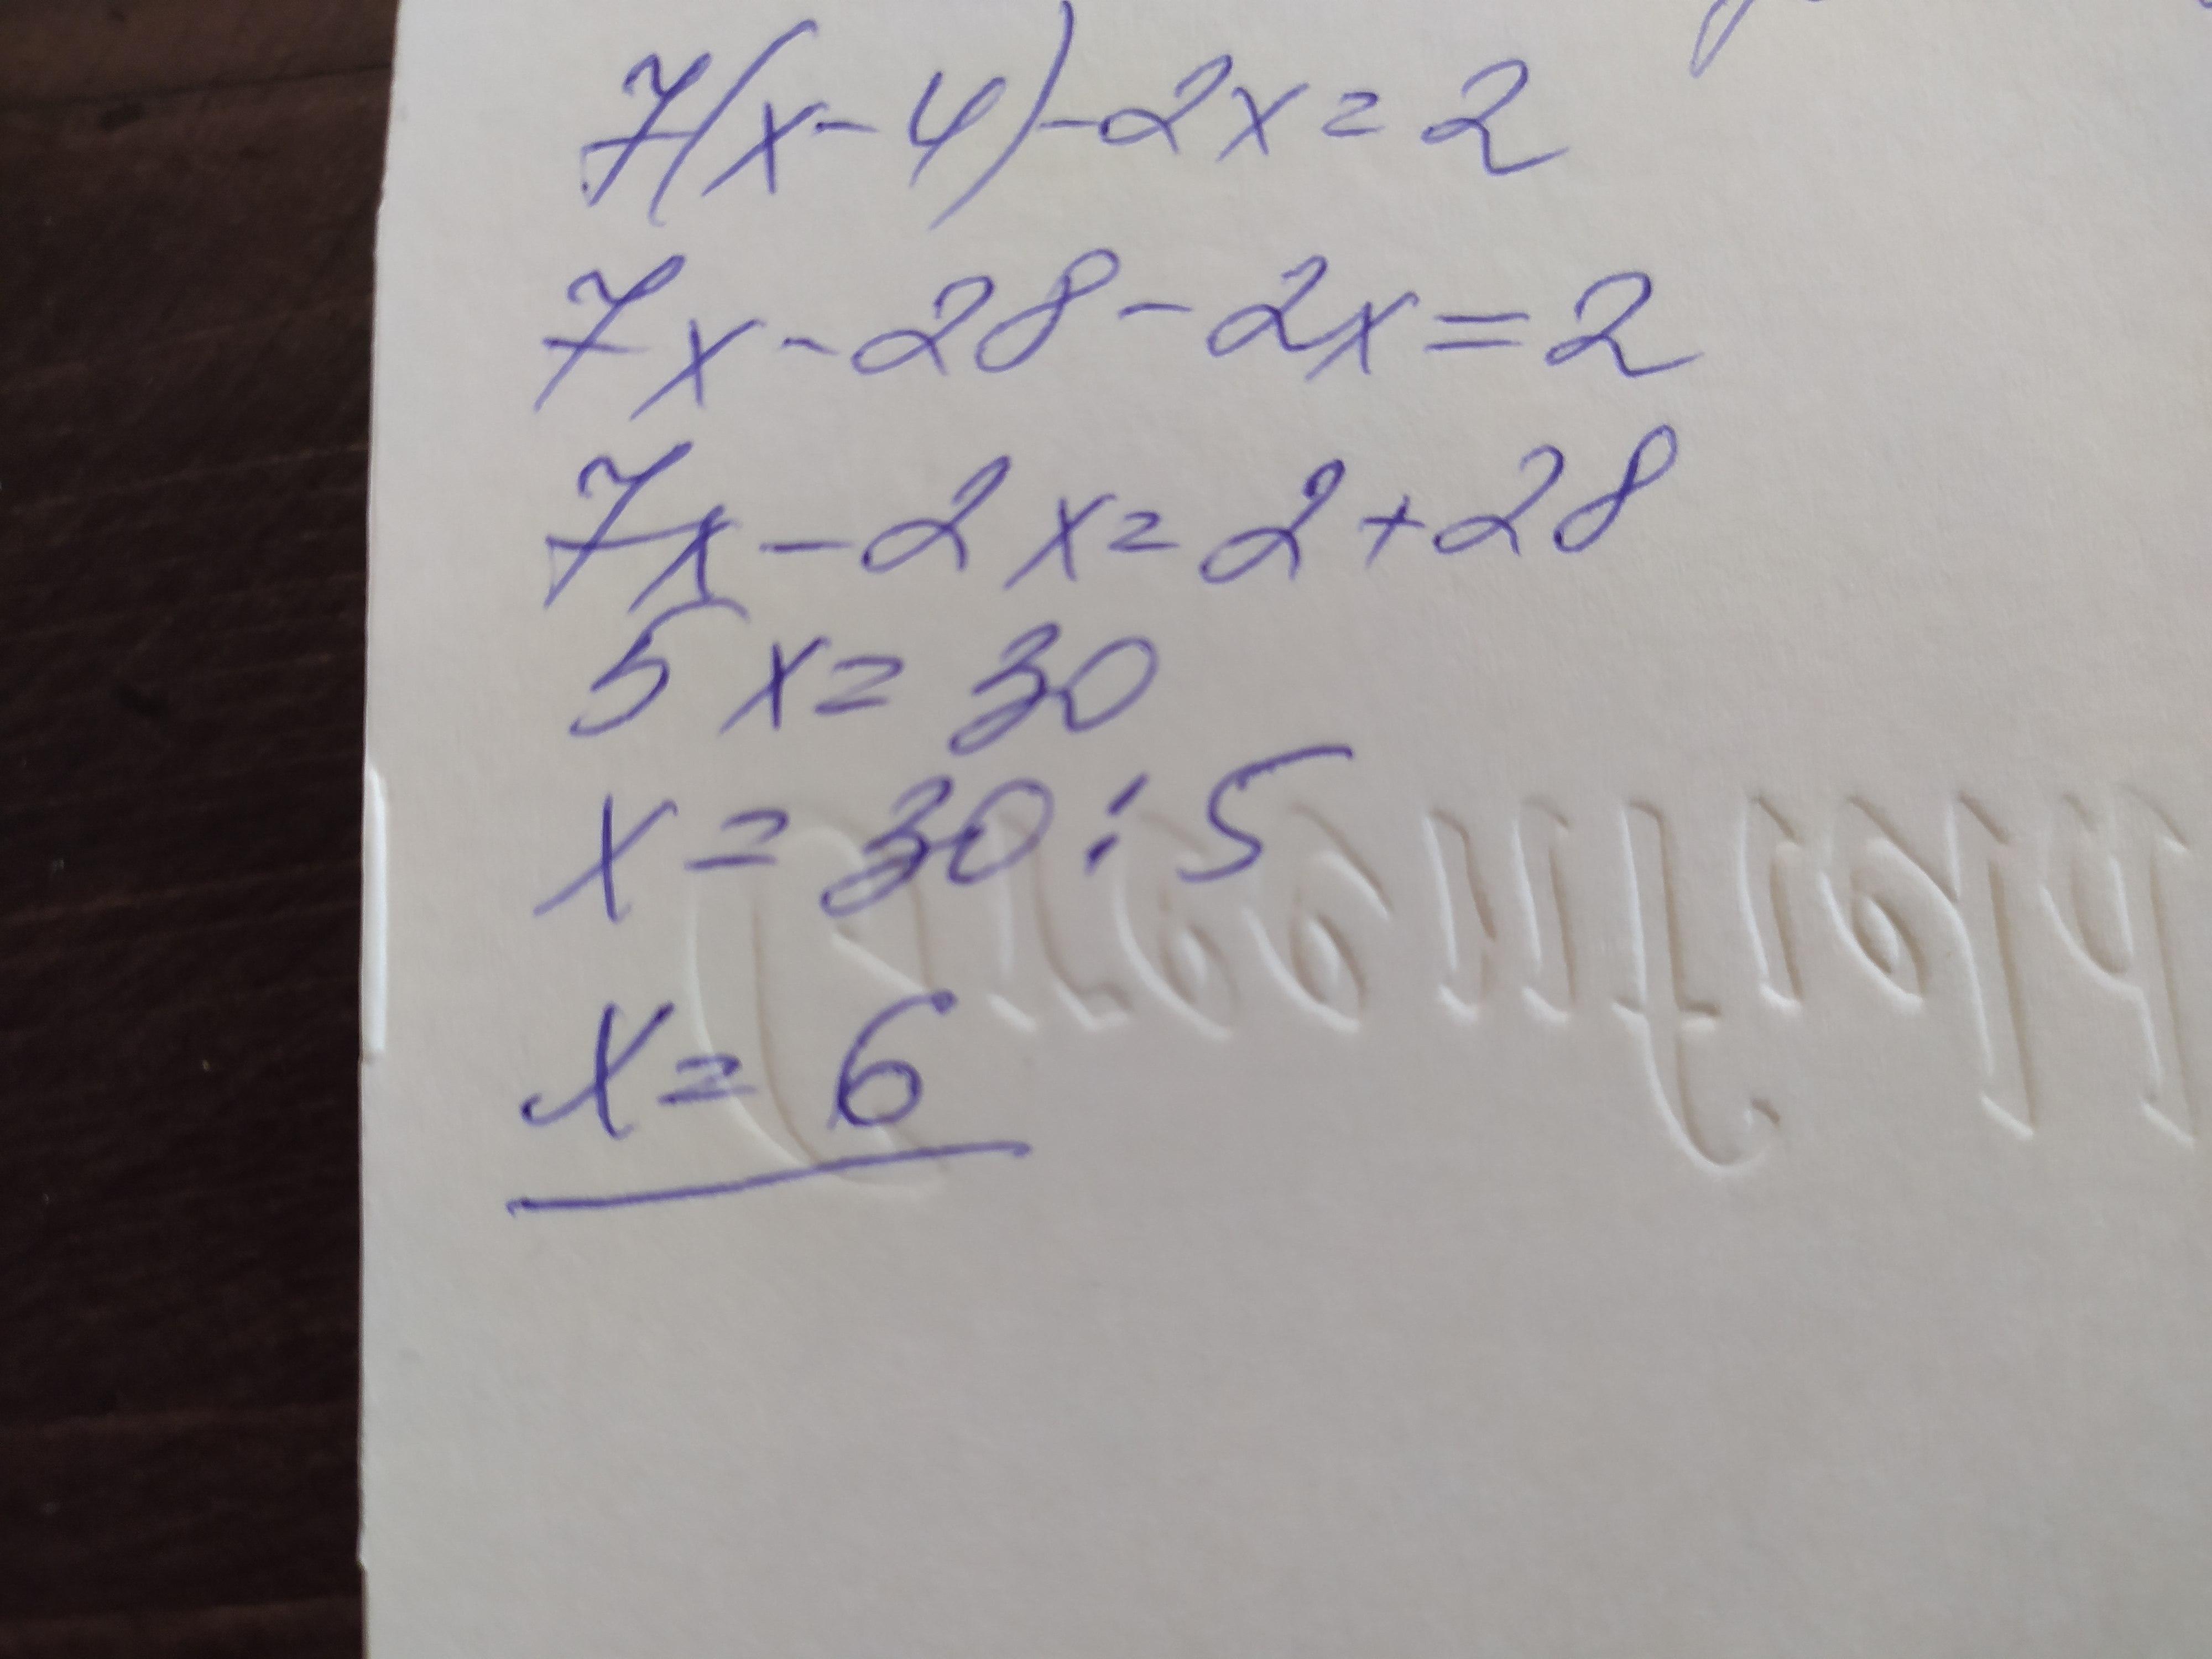 7(x-4)-2x=2
7x-28-2x=2
7x-2x=2+28
5x=30
x=30:5
x=6